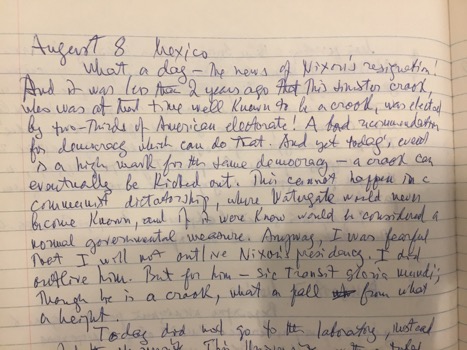 August 8 Mexico
What a day – The news of Nixon's resignation!
And it was less than 2 years ago that This sinister crook,
who was at that time well known to be a crook, was elected
by two-thirds of American electorate! A bad recommendation
for democracy which can do that. And yet today's event
is a high mark for the same democracy – a crook can
eventually be kicked out. This cannot happen in a
communist dictatorship, where Watergate would never
become known, and if it were know would be considered a
normal governmental measure. Anyway, I was fearful
that I will not outlive Nixon's presidency. I did
outlive him. But for him – sic transit gloria mundi;
Though he is a crook, what a fall from what
a height.
Today did not go to the laboratory, instead